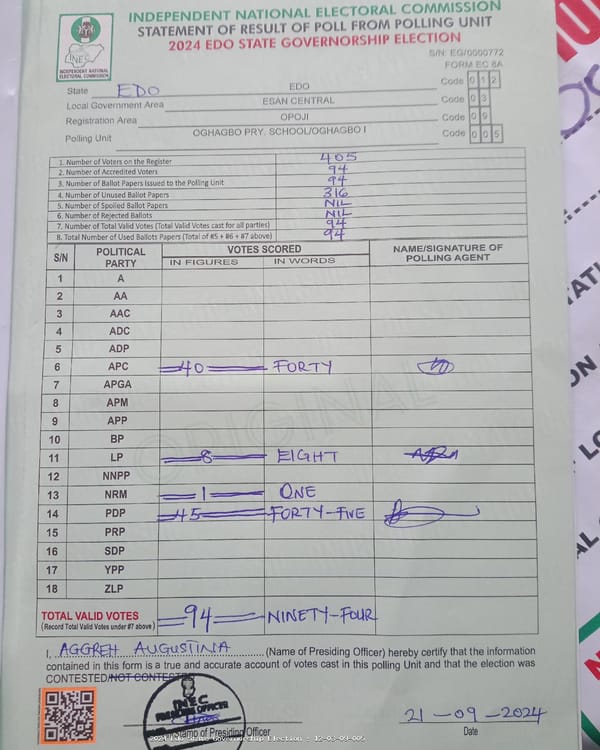 INDEPENDENT NATIONAL ELECTORAL COMMISSION
STATEMENT OF RESULT OF POLL FROM POLLING UNIT
2024 EDO STATE GOVERNORSHIP ELECTION
INEC
INDEPENDENT NATIONAL ELECTORAL COMMISSION
S/N: EG/0000772
FORM EC 8A
State EDO EDO Code 0 1 2
Local Government Area ESAN CENTRAL Code 0 3
Registration Area OPOJI Code 0 9
Polling Unit OGHAGBO PRY. SCHOOL/OGHAGBO I Code 0 0 5
1. Number of Voters on the Register 405
2. Number of Accredited Voters 94
3. Number of Ballot Papers Issued to the Polling Unit 94
4. Number of Unused Ballot Papers 316
5. Number of Spoiled Ballot Papers NIL
6. Number of Rejected Ballots NIL
7. Number of Total Valid Votes (Total Valid Votes cast for all parties) 94
8. Total Number of Used Ballots Papers (Total of #5 + #6 + #7 above) 94
S/N POLITICAL PARTY VOTES SCORED NAME/SIGNATURE OF POLLING AGENT
IN FIGURES IN WORDS
1 A
2 AA
3 AAC
4 ADC
5 ADP
6 APC 40 FORTY
7 APGA
8 APM
9 APP
10 BP
11 LP 8 EIGHT
12 NNPP
13 NRM 1 ONE
14 PDP 45 FORTY-FIVE
15 PRP
16 SDP
17 YPP
18 ZLP
ORIGINAL
TOTAL VALID VOTES 94 NINETY-FOUR
(Record Total Valid Votes under #7 above)
I, AGGREH AUGUSTINA (Name of Presiding Officer) hereby certify that the information
contained in this form is a true and accurate account of votes cast in this polling Unit and that the election was
CONTESTED/NOT CONTESTED
INEC
PRESIDING OFFICER
Stamp of Presiding Officer
21-09-2024
Date
2024 Edo State Governorship Election - 12-03-09-005